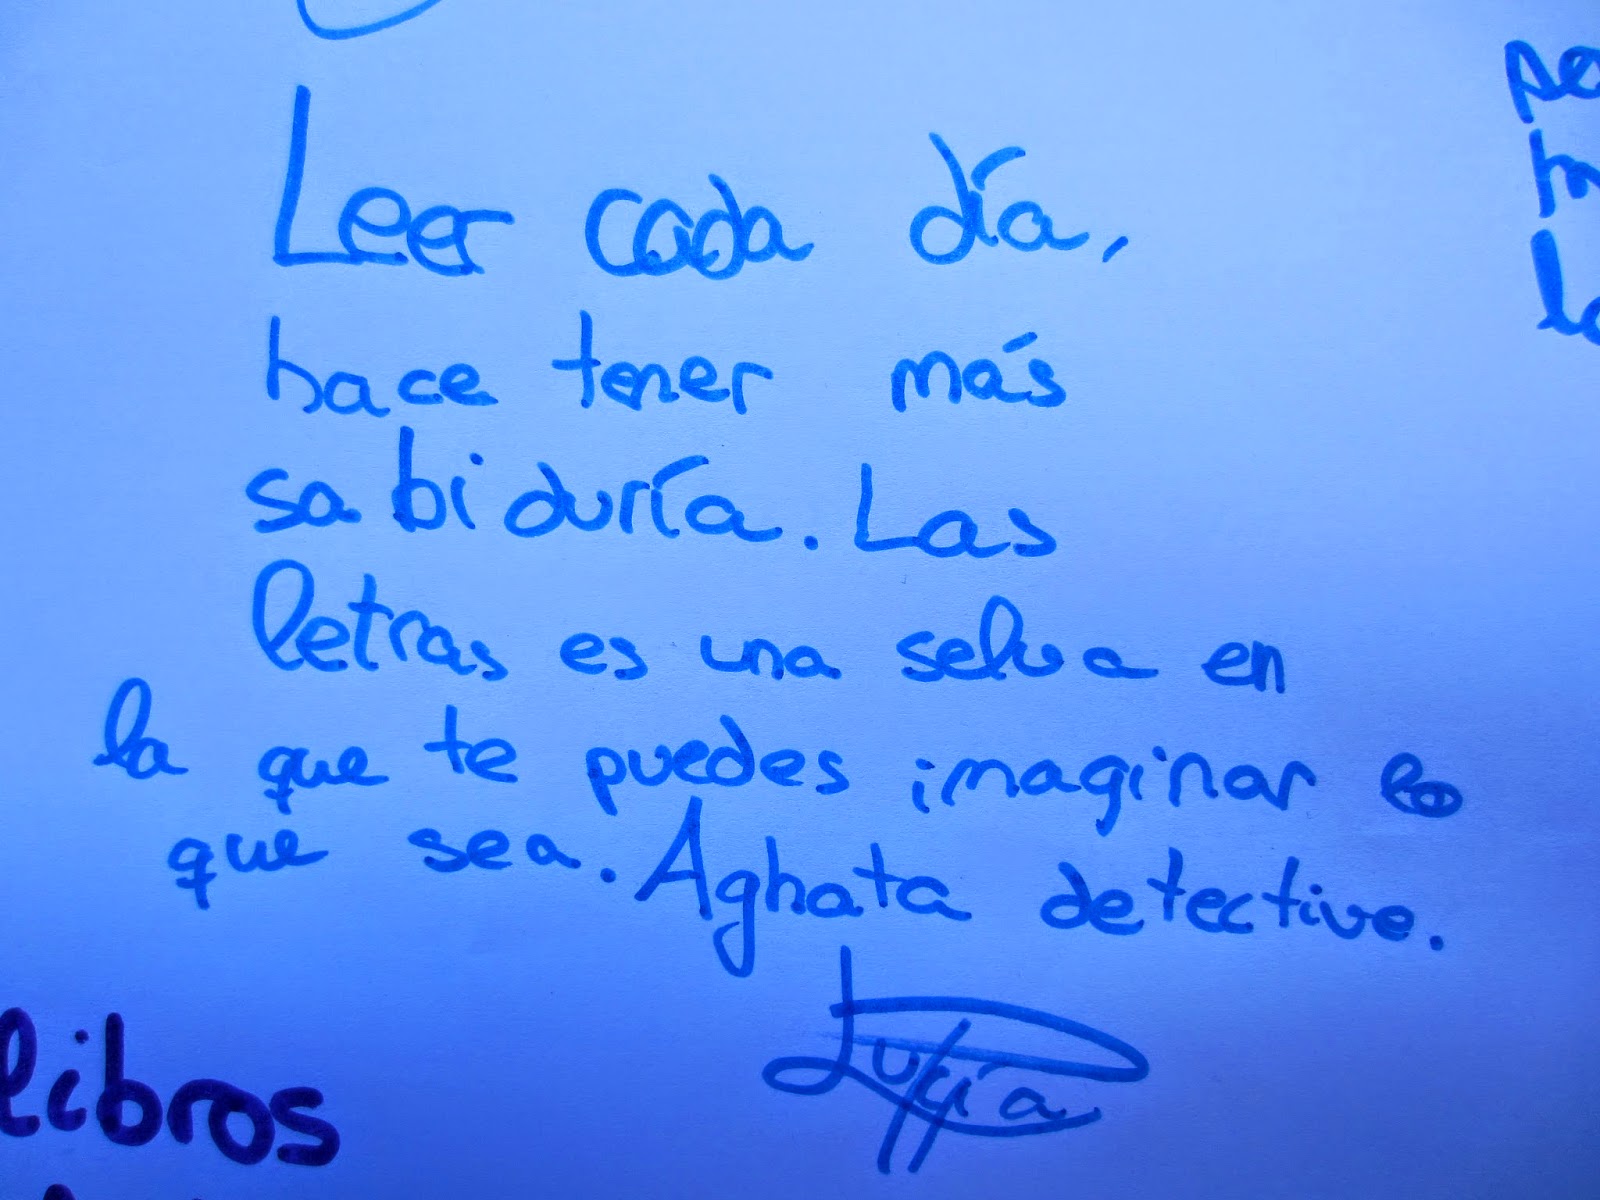 Leer cada día,
hace tener más
sabiduría. Las
letras es una selva en
la que te puedes imaginar lo
que sea. Aghata detective.
Lucía
libros